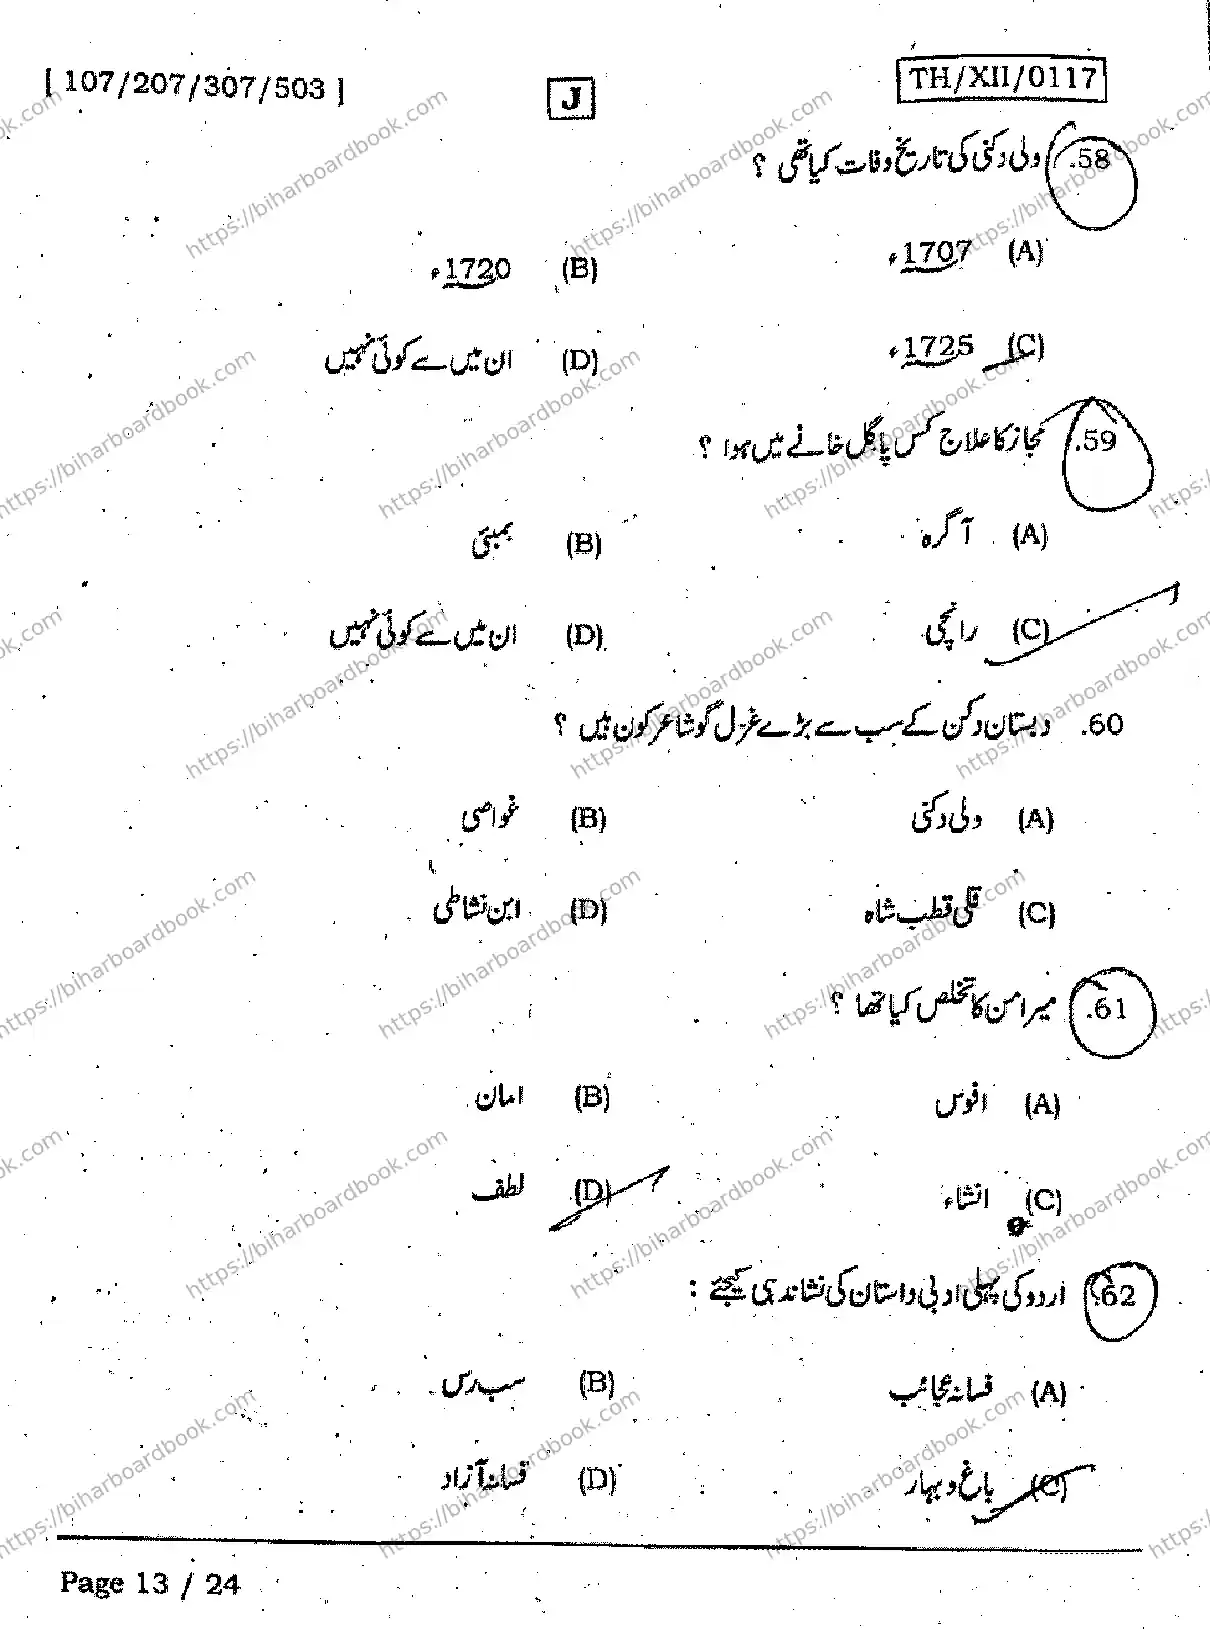 [ 107/207/307/503 ]
J
TH/XII/0117
58. ولی دکنی کی تاریخ وفات کیا تھی ؟
(A) 1707ء
(B) 1720ء
(C) 1725ء
(D) ان میں سے کوئی نہیں
59. مجاز کا علاج کس پاگل خانے میں ہوا ؟
(A) آگرہ
(B) بمبئی
(C) رانچی
(D) ان میں سے کوئی نہیں
60. دبستان دکن کے سب سے بڑے غزل گو شاعر کون ہیں ؟
(A) ولی دکنی
(B) غواصی
(C) قلی قطب شاہ
(D) ابن نشاطی
61. میر امن کا تخلص کیا تھا ؟
(A) افوس
(B) امان
(C) انشاء
(D) لطف
62. اردو کی پہلی ادبی داستان کی نشاندہی کیجئے :
(A) فسانہ عجائب
(B) سب رس
(C) باغ و بہار
(D) فسانہ آزاد
Page 13 / 24
https://biharboardbook.com